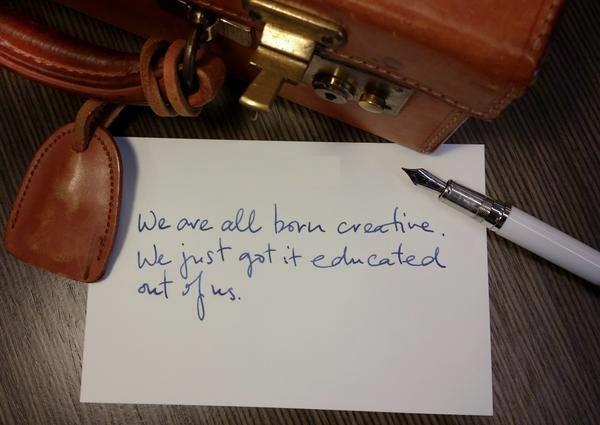 We are all born creative.
We just got it educated
out of us.